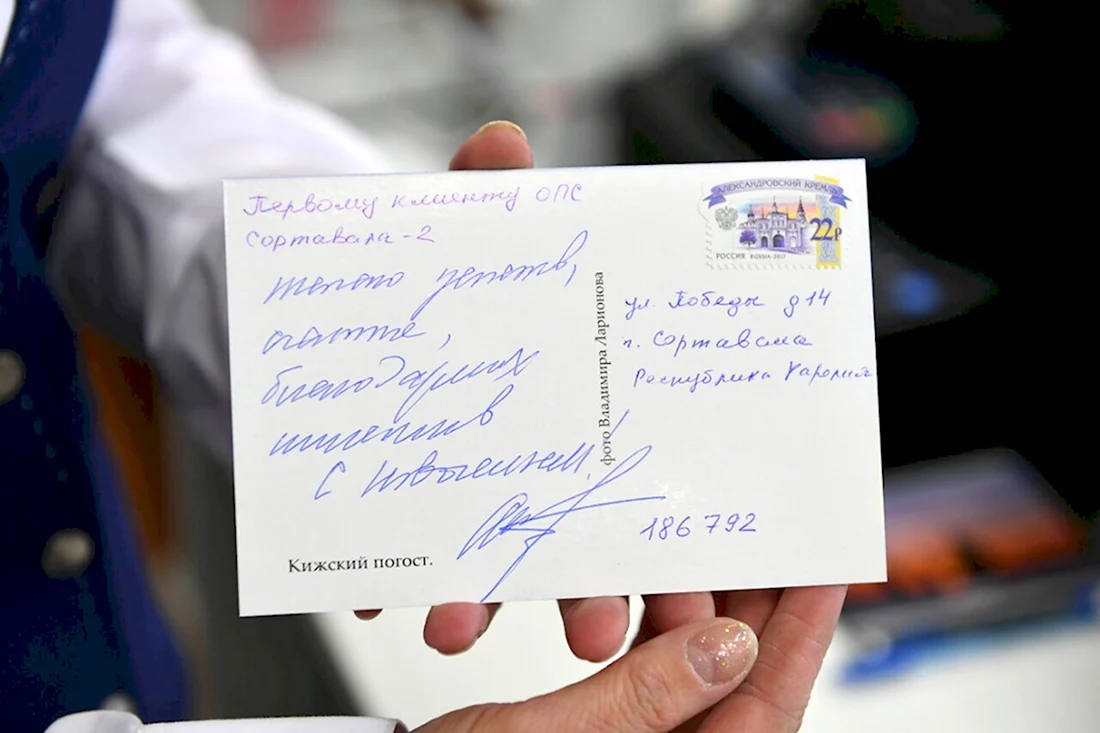 Первому клиенту ОПС
Сортавала-2
желаю успехов,
счастья,
благодарных
клиентов
С новосельем!
Кижский погост.
фото Владимира Ларионова
АЛЕКСАНДРОВСКИЙ КРЕМЛЬ
22р
РОССИЯ RUSSIA·2017
ул. Победы д 14
г. Сортавала
Республика Карелия
186792